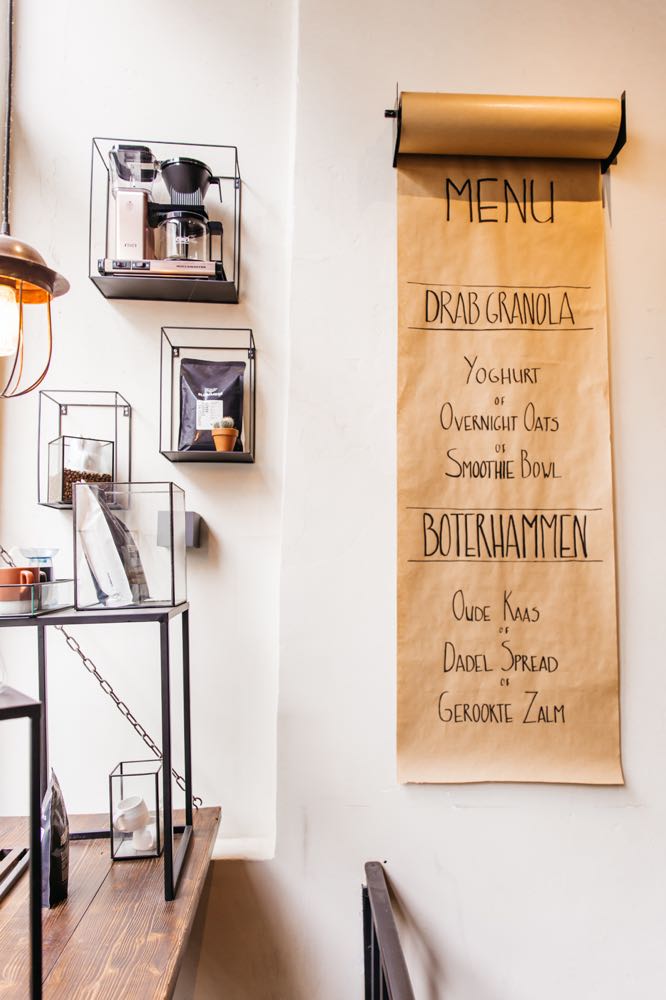 MENU
DRAB GRANOLA
YOGHURT
OF
OVERNIGHT OATS
OF
SMOOTHIE BOWL
BOTERHAMMEN
OUDE KAAS
OF
DADEL SPREAD
OF
GEROOKTE ZALM